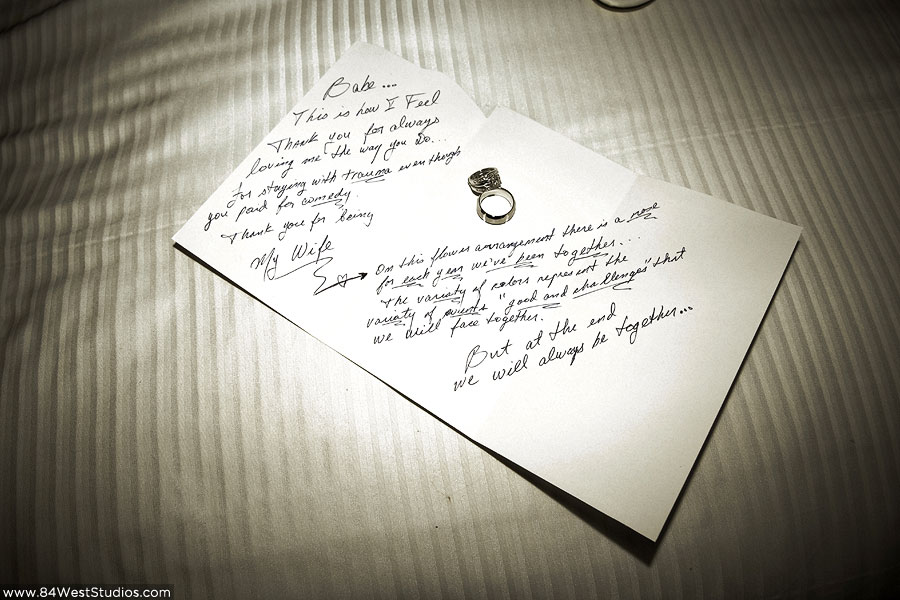 Babe...
This is how I Feel
Thank you for always
loving me the way you do...
for staying with trauma even though
you paid for comedy.
Thank you for being
My Wife
On this flower arrangement there is a rose
for each year we've been together...
The variety of colors represent the
variety of events "good and challenges" that
we will face together.
But at the end
we will always be together...
www.84WestStudios.com